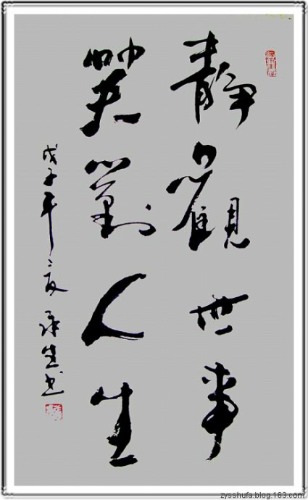 靜觀世事
笑對人生
戊子年夏 生书
zysshufa.blog.163.com